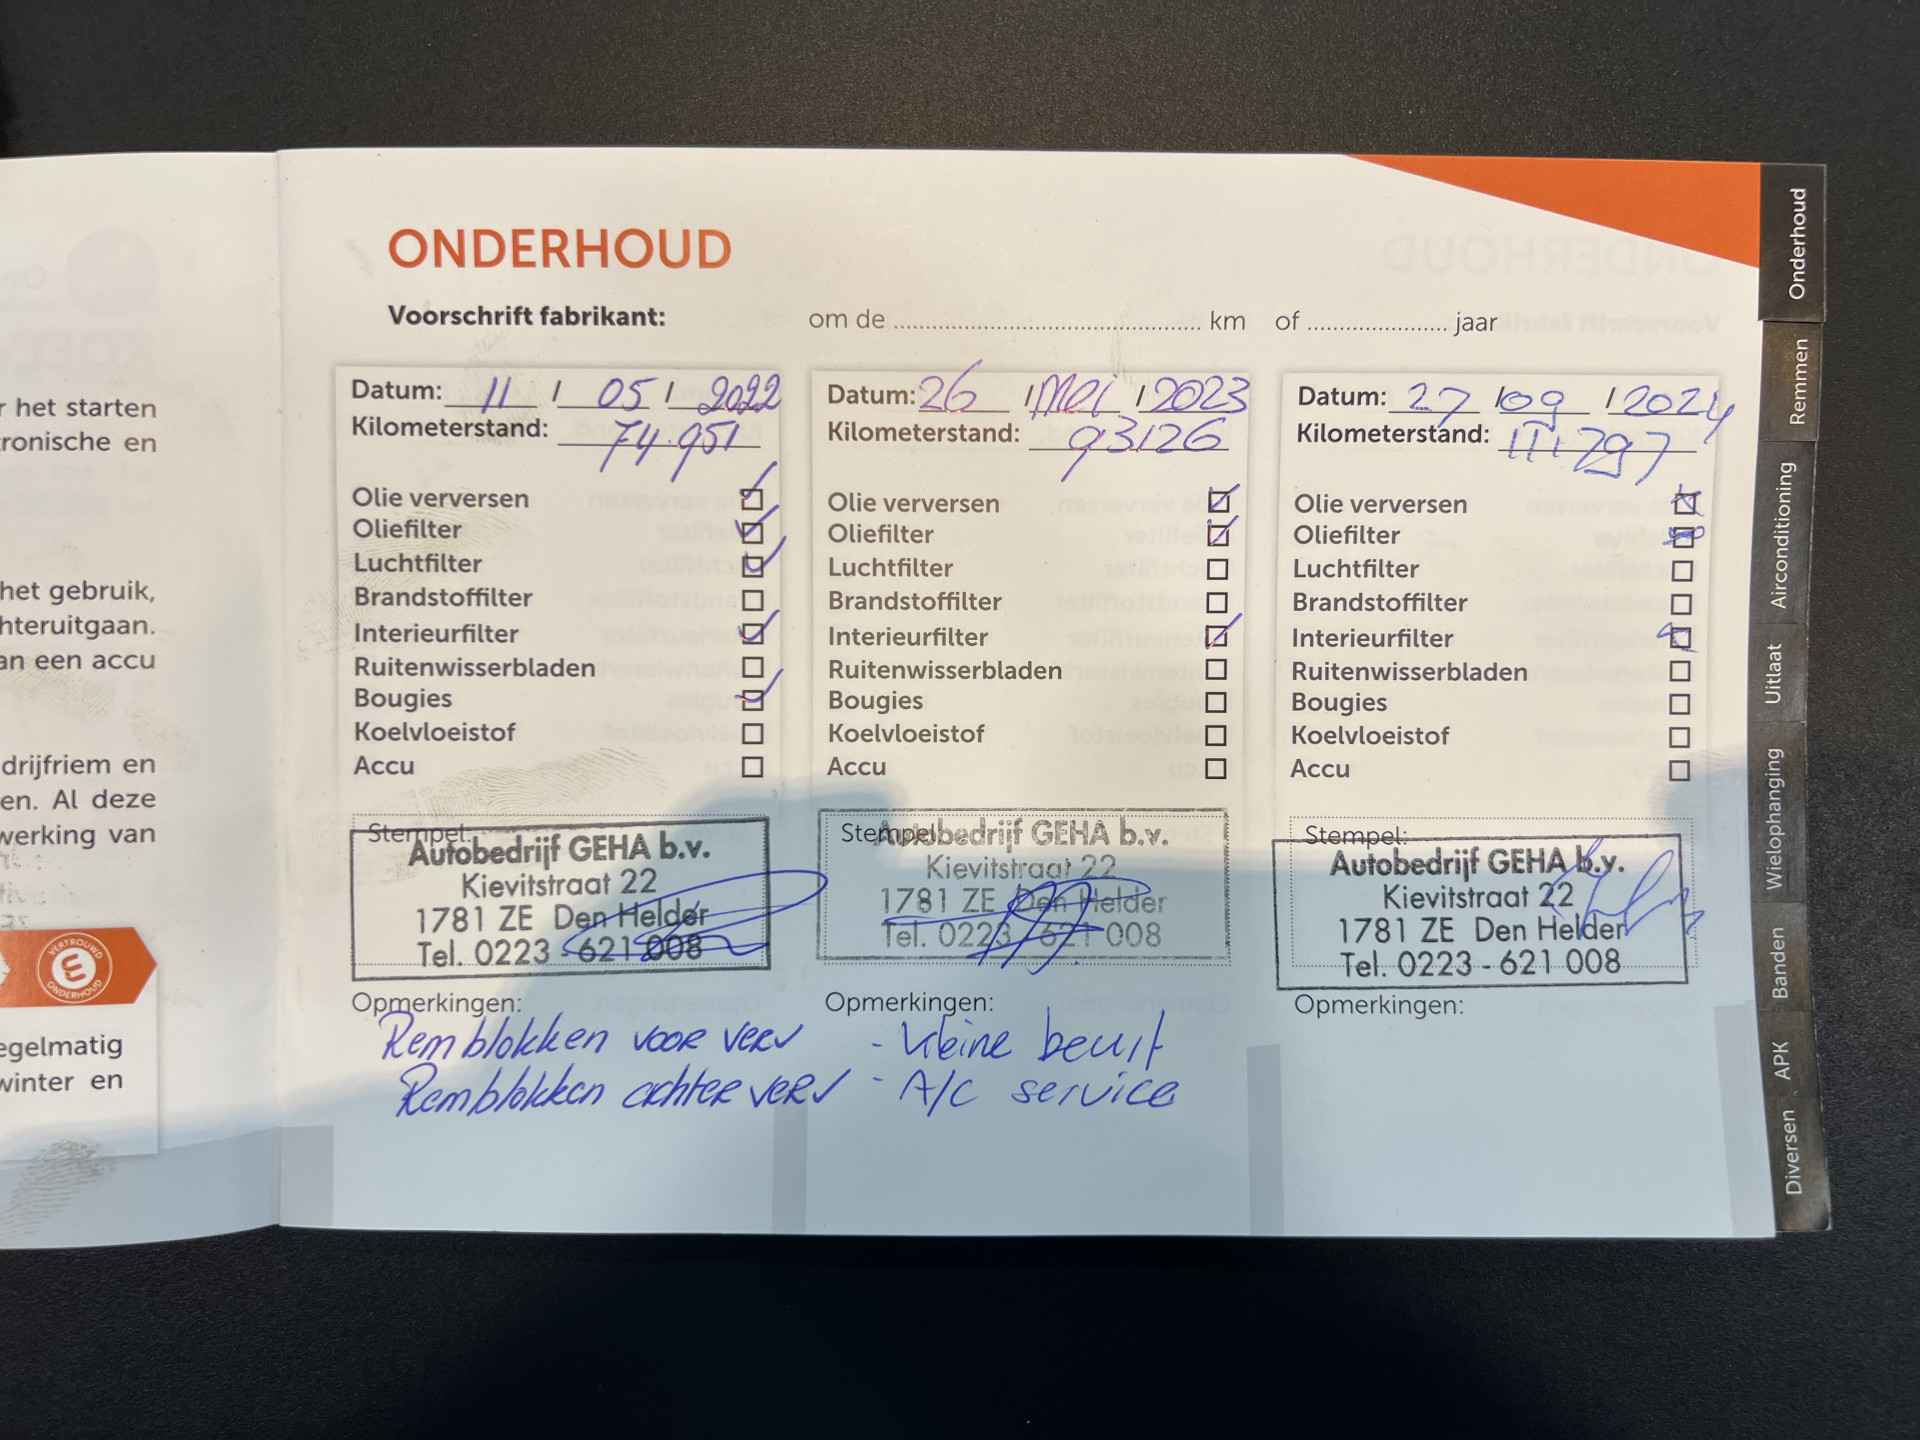 r het starten
tronische en
het gebruik,
hteruitgaan.
an een accu
drijfriem en
en. Al deze
werking van
VERTROUWD
ONDERHOUD
egelmatig
winter en
ONDERHOUD
Voorschrift fabrikant: om de ........ km of ........ jaar
Datum: 11 / 05 / 2022
Kilometerstand: 74.951
Olie verversen
Oliefilter
Luchtfilter
Brandstoffilter
Interieurfilter
Ruitenwisserbladen
Bougies
Koelvloeistof
Accu
Stempel:
Autobedrijf GEHA b.v.
Kievitstraat 22
1781 ZE Den Helder
Tel. 0223 - 621 008
Opmerkingen:
Remblokken voor verv
Remblokken achter verv
Datum: 26 / Mei / 2023
Kilometerstand: 93126
Olie verversen
Oliefilter
Luchtfilter
Brandstoffilter
Interieurfilter
Ruitenwisserbladen
Bougies
Koelvloeistof
Accu
Stempel:
Autobedrijf GEHA b.v.
Kievitstraat 22
1781 ZE Den Helder
Tel. 0223 - 621 008
Opmerkingen:
- Kleine beurt
- A/C service
Datum: 27 / 09 / 2024
Kilometerstand: 111297
Olie verversen
Oliefilter
Luchtfilter
Brandstoffilter
Interieurfilter
Ruitenwisserbladen
Bougies
Koelvloeistof
Accu
Stempel:
Autobedrijf GEHA b.v.
Kievitstraat 22
1781 ZE Den Helder
Tel. 0223 - 621 008
Opmerkingen:
Onderhoud
Remmen
Airconditioning
Uitlaat
Wielophanging
Banden
APK
Diversen